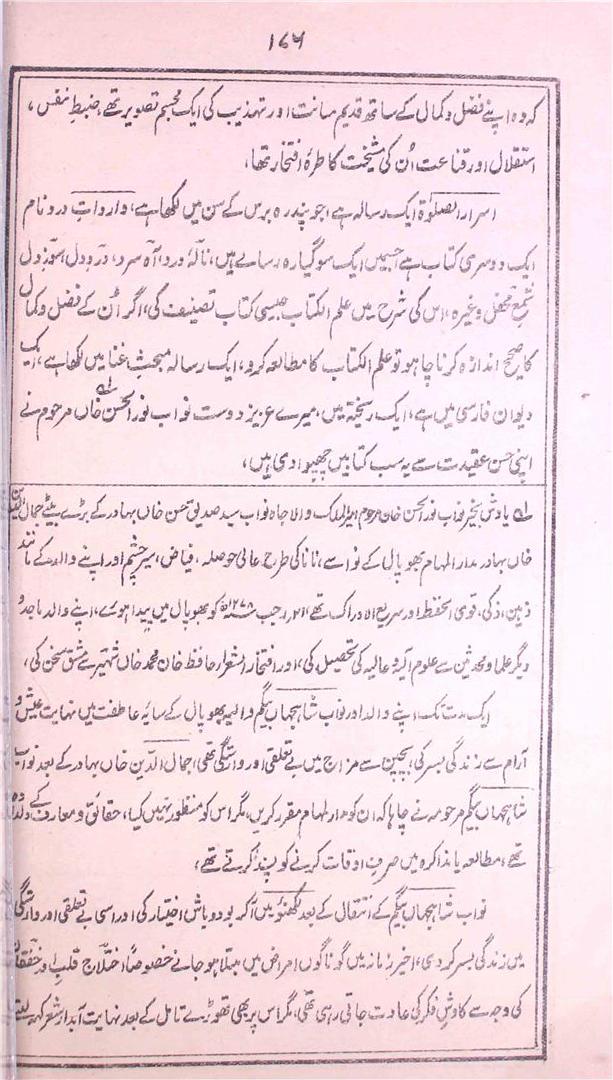 ۱۷۶
کہ وہ اپنے فضل و کمال کے ساتھ قدیم متانت اور تہذیب کی ایک مجسم تصویر تھے، ضبط نفس،
استقلال اور قناعت اُن کی مشیخت کا طرۂ افتخار تھا،
اسرار الصلوٰۃ ایک رسالہ ہے، جو پندرہ برس کے سن میں لکھا ہے، واردات درد نام
ایک دوسری کتاب ہے جسمیں ایک سو گیارہ رسالے ہیں، نالۂ درد، آہ سرد، درد دل، سوز دل
شمع محفل وغیرہ، اس کی شرح میں علم الکتاب جیسی کتاب تصنیف کی، اگر اُن کے فضل و کمال
کا صحیح اندازہ کرنا چاہو تو علم الکتاب کا مطالعہ کرو، ایک رسالہ مبحث غنا میں لکھا ہے، ایک
دیوان فارسی میں ہے، ایک ریختہ میں، میرے عزیز دوست نواب نور الحسن خاں مرحوم نے
اپنی حسن عقیدت سے یہ سب کتابیں چھپوا دی ہیں،
لہ یادش بخیر نواب نور الحسن خان مرحوم امیر الملک والا جاہ نواب سید صدیق حسن خاں بہادر کے بڑے بیٹے جمال الدین
خاں بہادر مدار المہام بھوپال کے نواسے، نانا کی طرح عالی حوصلہ، فیاض، سیر چشم اور اپنے والد کے مانند
ذہین، ذکی، قوی الحفظ اور سریع الادراک تھے، ۲۱؍ رجب ۱۲۷۸ھ کو بھوپال میں پیدا ہوئے، اپنے والد ماجد و
دیگر علما و محدثین سے علوم آلیہ و عالیہ کی تحصیل کی، اور افتخار الشعرا حافظ خان محمد خاں شہیر سے مشق سخن کی،
ایک مدت تک اپنے والد اور نواب شاہجہاں بیگم والیہ بھوپال کے سایۂ عاطفت میں نہایت عیش و
آرام سے زندگی بسر کی، بچپن سے مزاج میں بے تعلقی اور وارستگی تھی، جمال الدین خاں بہادر کے بعد نواب
شاہجہاں بیگم مرحومہ نے چاہا کہ ان کو مدار المہام مقرر کریں، مگر اس کو منظور نہیں کیا، حقائق و معارف کے دلدادہ
تھے، مطالعہ یا مذاکرہ میں صرف اوقات کرنے کو پسند کرتے تھے،
نواب شاہجہاں بیگم کے انتقال کے بعد لکھنؤ میں آکر بود و باش اختیار کی اور اسی بے تعلقی اور وارستگی
میں زندگی بسر کر دی، اخیر زمانہ میں گوناگوں امراض میں مبتلا ہو جانے خصوصاً اختلاج قلب اور خفقان
کی وجہ سے کاوش فکر کی عادت جاتی رہی تھی، مگر اس پر بھی تھوڑے تامل کے بعد نہایت آبدار شعر کہہ لیتے